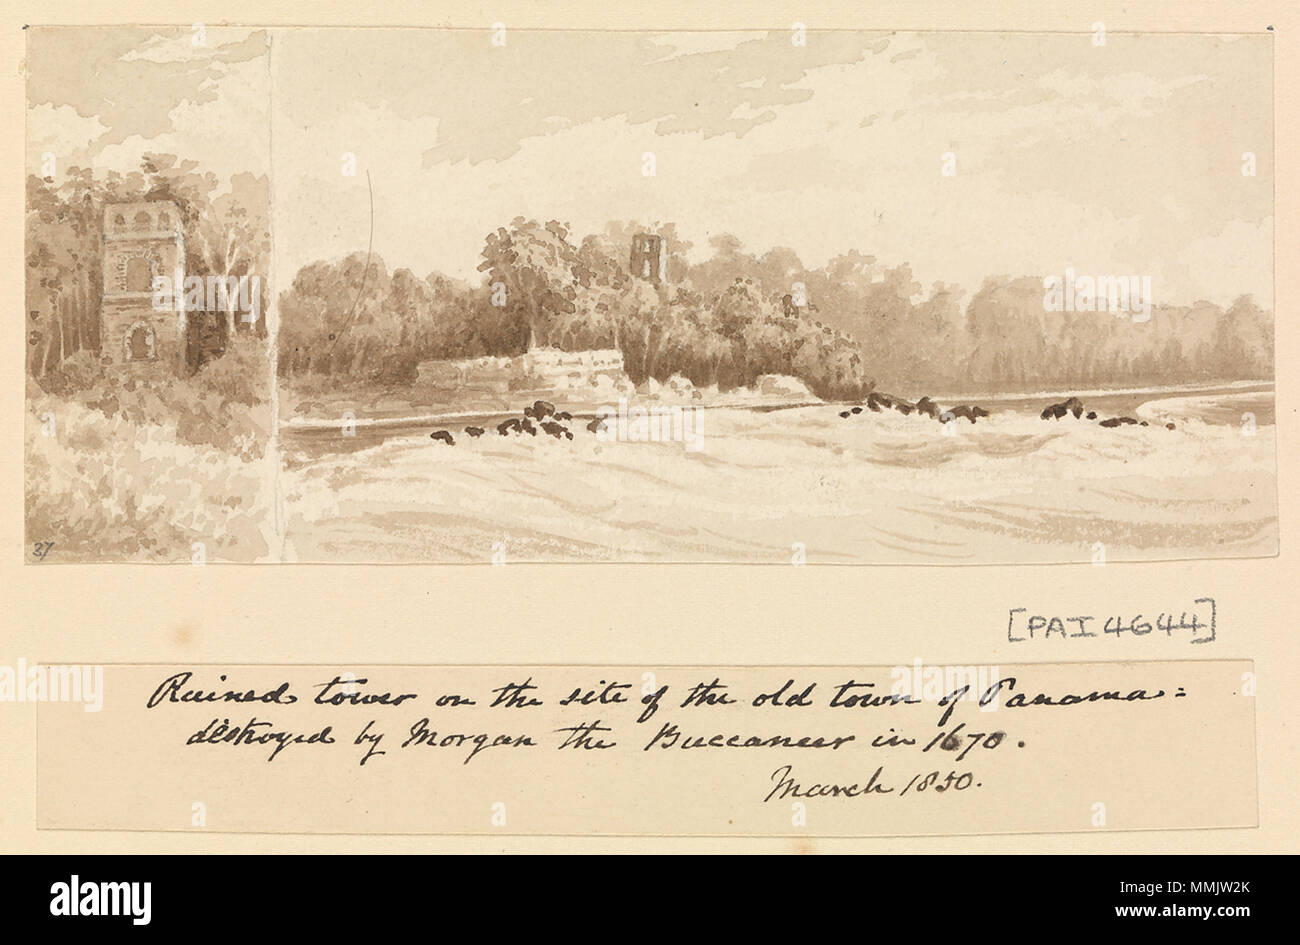 37
[PAI4644]
Ruined tower on the site of the old town of Panama =
destroyed by Morgan the Buccaneer in 1670.
March 1850.
alamy
Image ID: MMJW2K
www.alamy.com